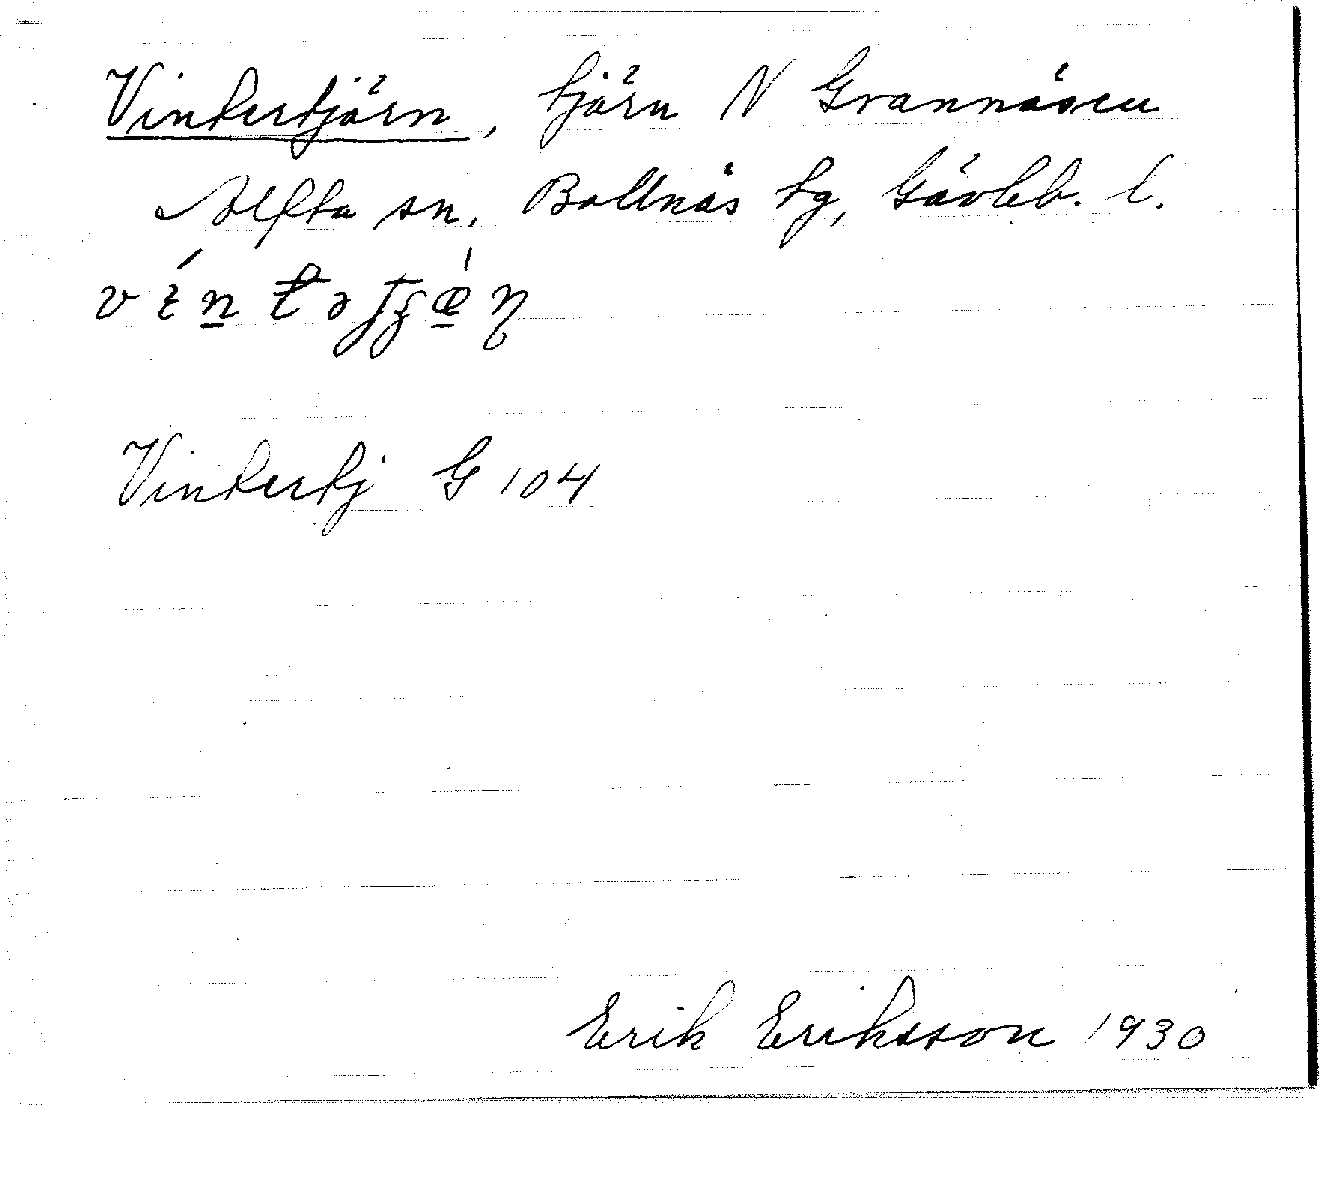 Vintertjärn, tjärn N Grannäsen
Alfta sn. Bollnäs tg, Gävleb. l.
Vintertj G 104
Erik Eriksson 1930